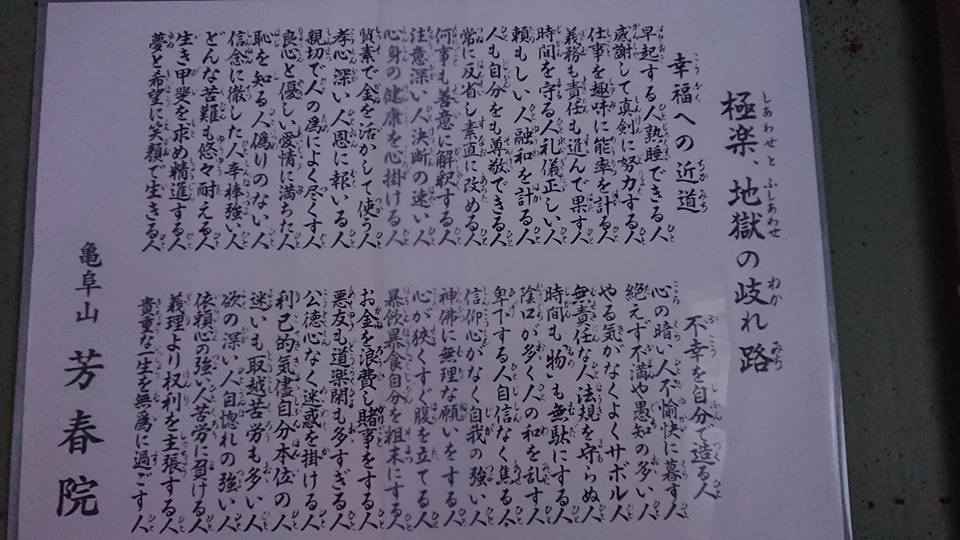 極楽、地獄の岐れ路
幸福への近道
早起する人熟睡できる人
感謝して真剣に努力する人
仕事を趣味に能率を計る人
義務も責任も進んで果す人
時間を守る人礼儀正しい人
頼もしい人融和を計る人
人も自分をも尊敬できる人
常に反省し素直に改める人
何事も善意に解釈する人
注意深い人決断の速い人
心身の健康を心掛ける人
質素で金を活かして使う人
孝心深い人恩に報いる人
親切で人の為によく尽くす人
良心と優しい愛情に満ちた人
恥を知る人偽りのない人
信念に徹した人辛棒強い人
どんな苦難も悠々耐える人
生き甲斐を求め精進する人
夢と希望に笑顔で生きる人
不幸を自分で造る人
心の暗い人不愉快に暮す人
絶えず不満や愚知の多い人
やる気がなくよくサボル人
無責任な人法規を守らぬ人
時間も物も無駄にする人
陰口が多く人の和を乱す人
卑下する人自信なく焦る人
信仰心がなく自我の強い人
神佛に無理な願いをする人
心が狭くすぐ腹を立てる人
暴飲暴食自分を粗末にする人
お金を浪費し賭事をする人
悪友も道楽閑も多すぎる人
公徳心なく迷惑を掛ける人
利己的気儘自分本位の人
迷いも取越苦労も多い人
欲の深い人自惚れの強い人
依頼心の強い人苦労に負ける人
義理より权利を主張する人
貴重な一生を無為に過ごす人
亀阜山 芳春院